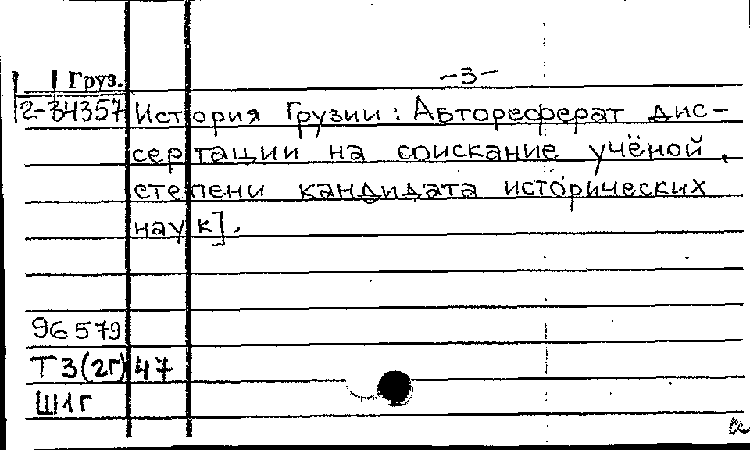 -3-
Груз.
2-34357 История Грузии: Автореферат дис-
сертации на соискание учёной
степени кандидата исторических
наук].
96579
Т3(2Г)47
Ш1Г